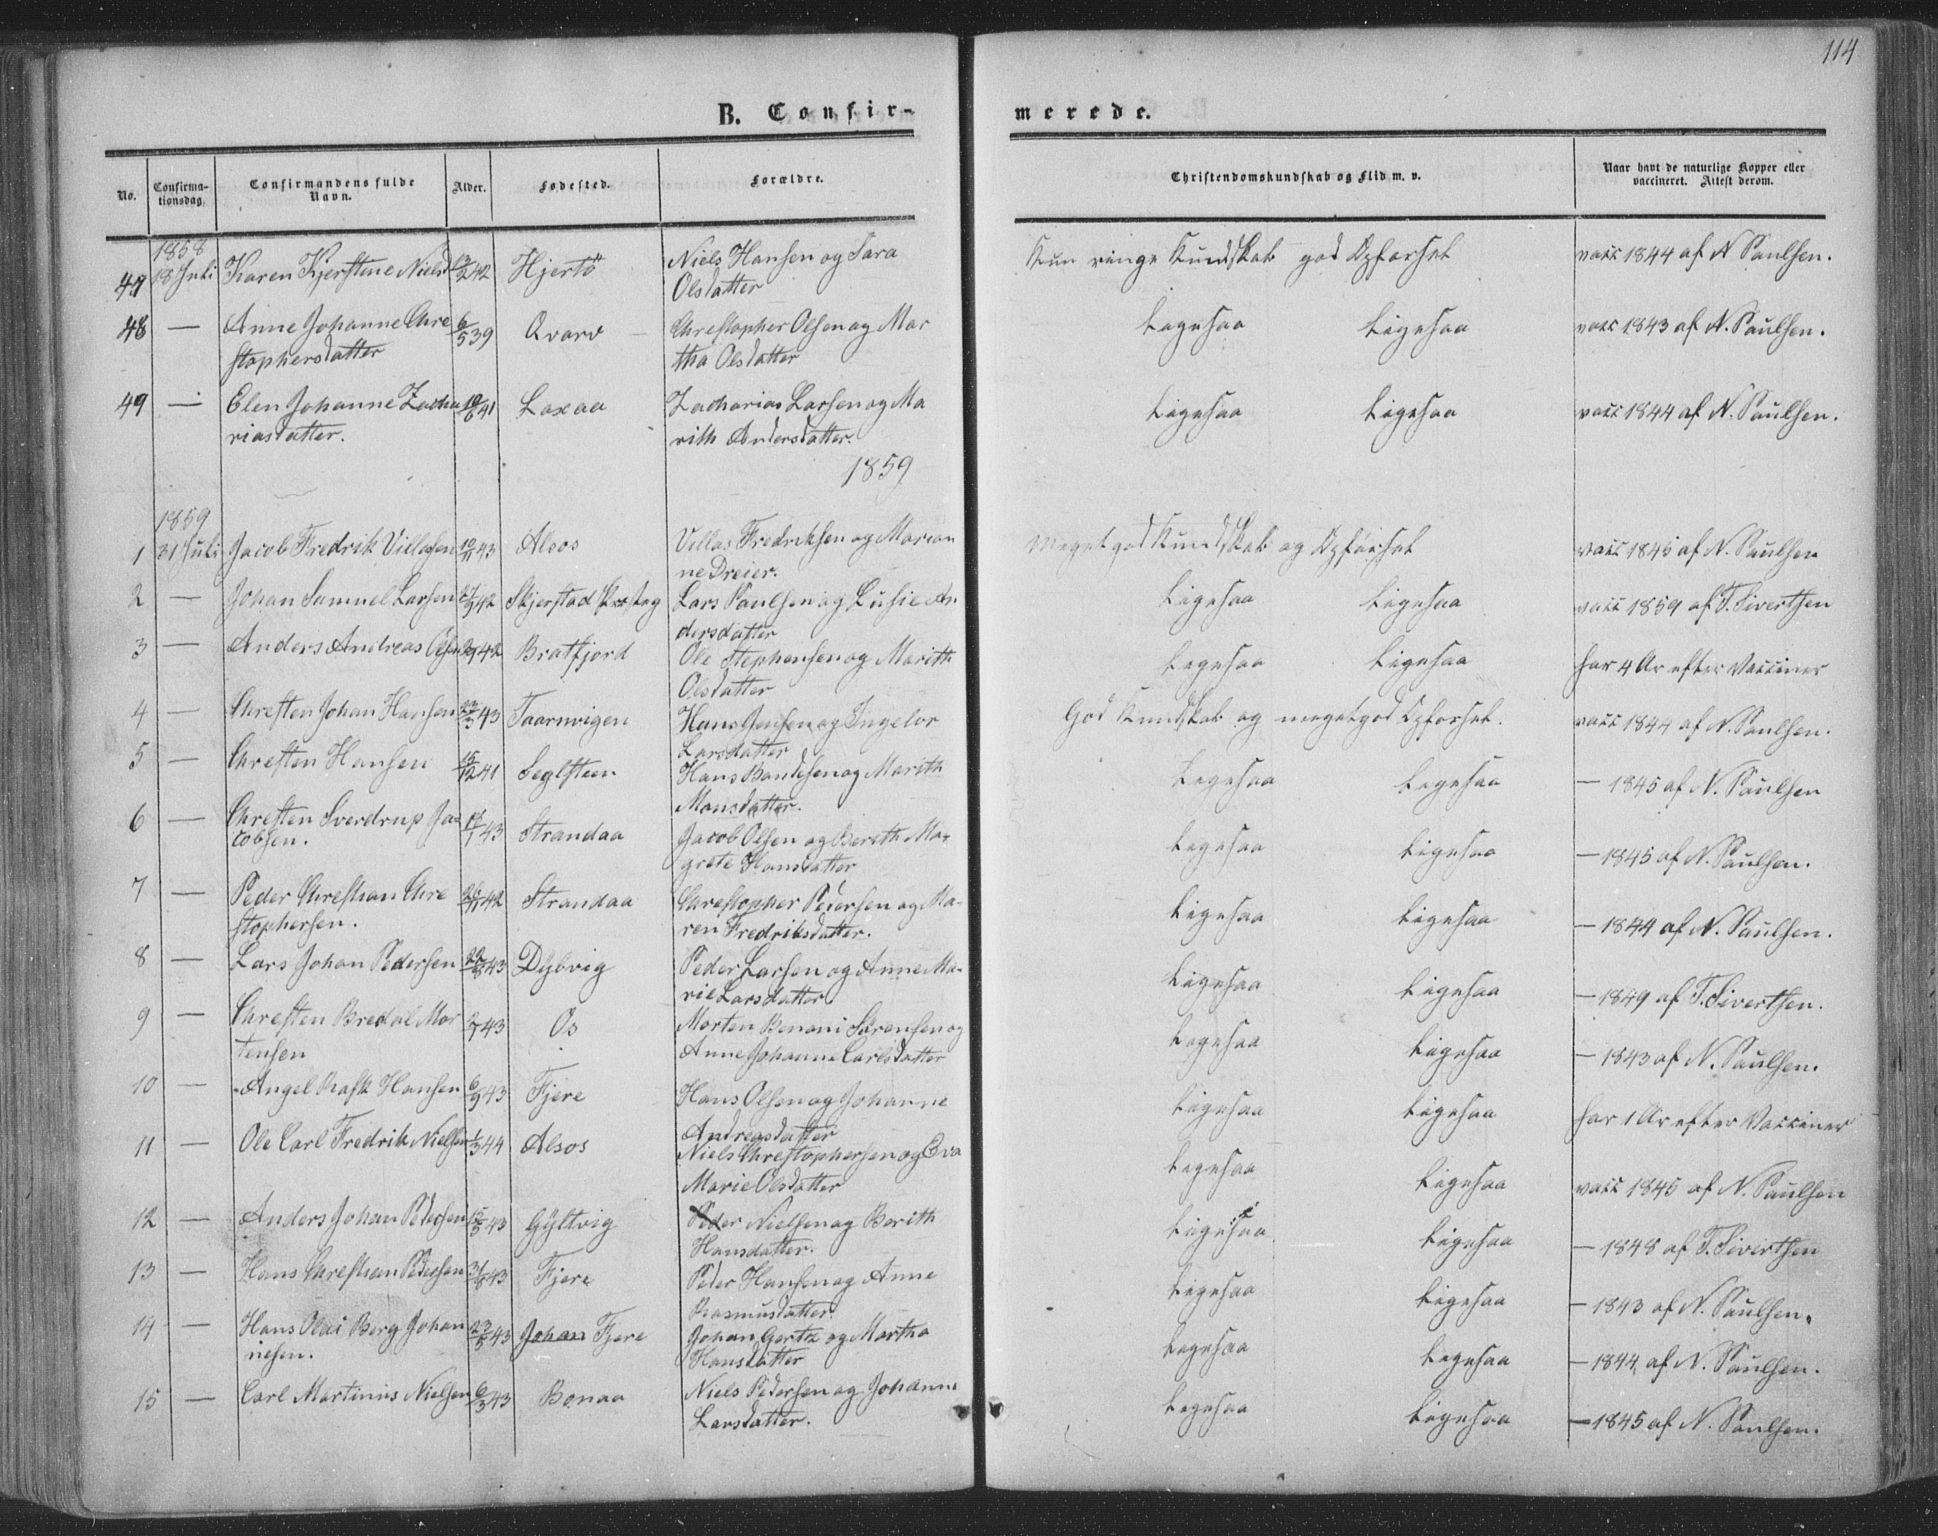 114
B. Confir-
merede.
No.
Confirma-
tionsdag.
Confirmandens fulde
Navn.
Alder.
Fødested.
Forældre.
Christendomskundskab og Flid m. v.
Naar havt de naturlige Kopper eller
vaccineret. Attest derom.
1858
47 18 Juli Karen Kjerstine Nielsd 42 Hjertö Niels Hansen og Sara Kun ringe Kundskab god Opforsel vacc 1844 af N Paulsen.
Olsdatter
48 — Anne Johanne Chre 6/5 39 Qvarv Christopher Olsen og Mar Ligesaa Ligesaa vacc 1843 af N. Paulsen.
stophersdatter tha Olsdatter
49 — Elen Johanne Zacha 41 Laxaa Zacharias Larsen og Ma Ligesaa Ligesaa vacc 1844 af N. Paulsen.
riasdatter. rith Andersdatter.
1859
1859
1 31 Juli Jacob Fredrik Villassen 43 Alsos Villas Fredriksen og Marian Meget god Kundskab og Opførsel vacc 1845 af N. Paulsen
ne Dreier.
2 — Johan Samuel Larsen 42 Skjerstad Lars Paulsen og Lusie An Ligesaa Ligesaa vacc 1859 af T. Sivertsen
dersdatter
3 — Anders Andreas Olsen 42 Bratfjord Ole Stephensen og Marith Ligesaa Ligesaa har 4 Ar efter Vacciner
Olsdatter
4 — Chresten Johan Hansen 43 Taarnvigen Hans Jensen og Ingebor God Kundskab og meget god Opforsel. vacc 1844 af N. Paulsen.
Larsdatter
5 — Chresten Hansen 15/12 41 Seglsteen Hans Bendtsen og Marith Ligesaa Ligesaa — 1845 af N. Paulsen
Monsdatter.
6 — Chresten Sverdrup Ja- 43 Strandaa Jacob Olsen og Berith Ma- Ligesaa Ligesaa — 1845 af N. Paulsen.
cobsen. grete Hansdatter
7 — Peder Christian Chre 42 Strandaa Christopher Pedersen og Ma- Ligesaa Ligesaa — 1844 af N. Paulsen.
stophersen. ren Fredriksdatter.
8 — Lars Johan Pedersen 43 Dybvig Peder Larsen og Anne Ma- Ligesaa Ligesaa — 1849 af T. Sivertsen.
rie Larsdatter
9 — Chresten Bredal Mor 43 Os Morten Benoni Sörensen og Ligesaa Ligesaa — 1843 af N. Paulsen.
tensen Anne Johanne Carlsdatter
10 — Angel Rask Hansen 6/9 43 Fjere Hans Olsen og Johanne Ligesaa Ligesaa har 1 Ar efter Vacciner
Andreasdatter
11 — Ole Carl Fredrik Nielsen 1/3 44 Alsos Niels Christophersen og Eva Ligesaa Ligesaa vacc 1845 af N. Paulsen
Marie Olsdatter
12 — Anders Johan Pedersen 43 Gyltvig Peder Nielsen og Berith Ligesaa Ligesaa — 1848 af T. Sivertsen
Hansdatter.
13 — Hans Christian Pedersen 31/8 43 Fjere Peder Hansen og Anne Ligesaa Ligesaa — 1843 af N. Paulsen.
Rasmusdatter.
14 — Hans Olai Berg Johan 43 Johan Fjere Johan Gertz og Martha Ligesaa Ligesaa — 1844 af N. Paulsen.
nesen. Hansdatter
15 — Carl Martinus Nielsen 6/3 43 Bonaa Niels Pedersen og Johanne Ligesaa Ligesaa — 1845 af N. Paulsen.
Larsdatter.